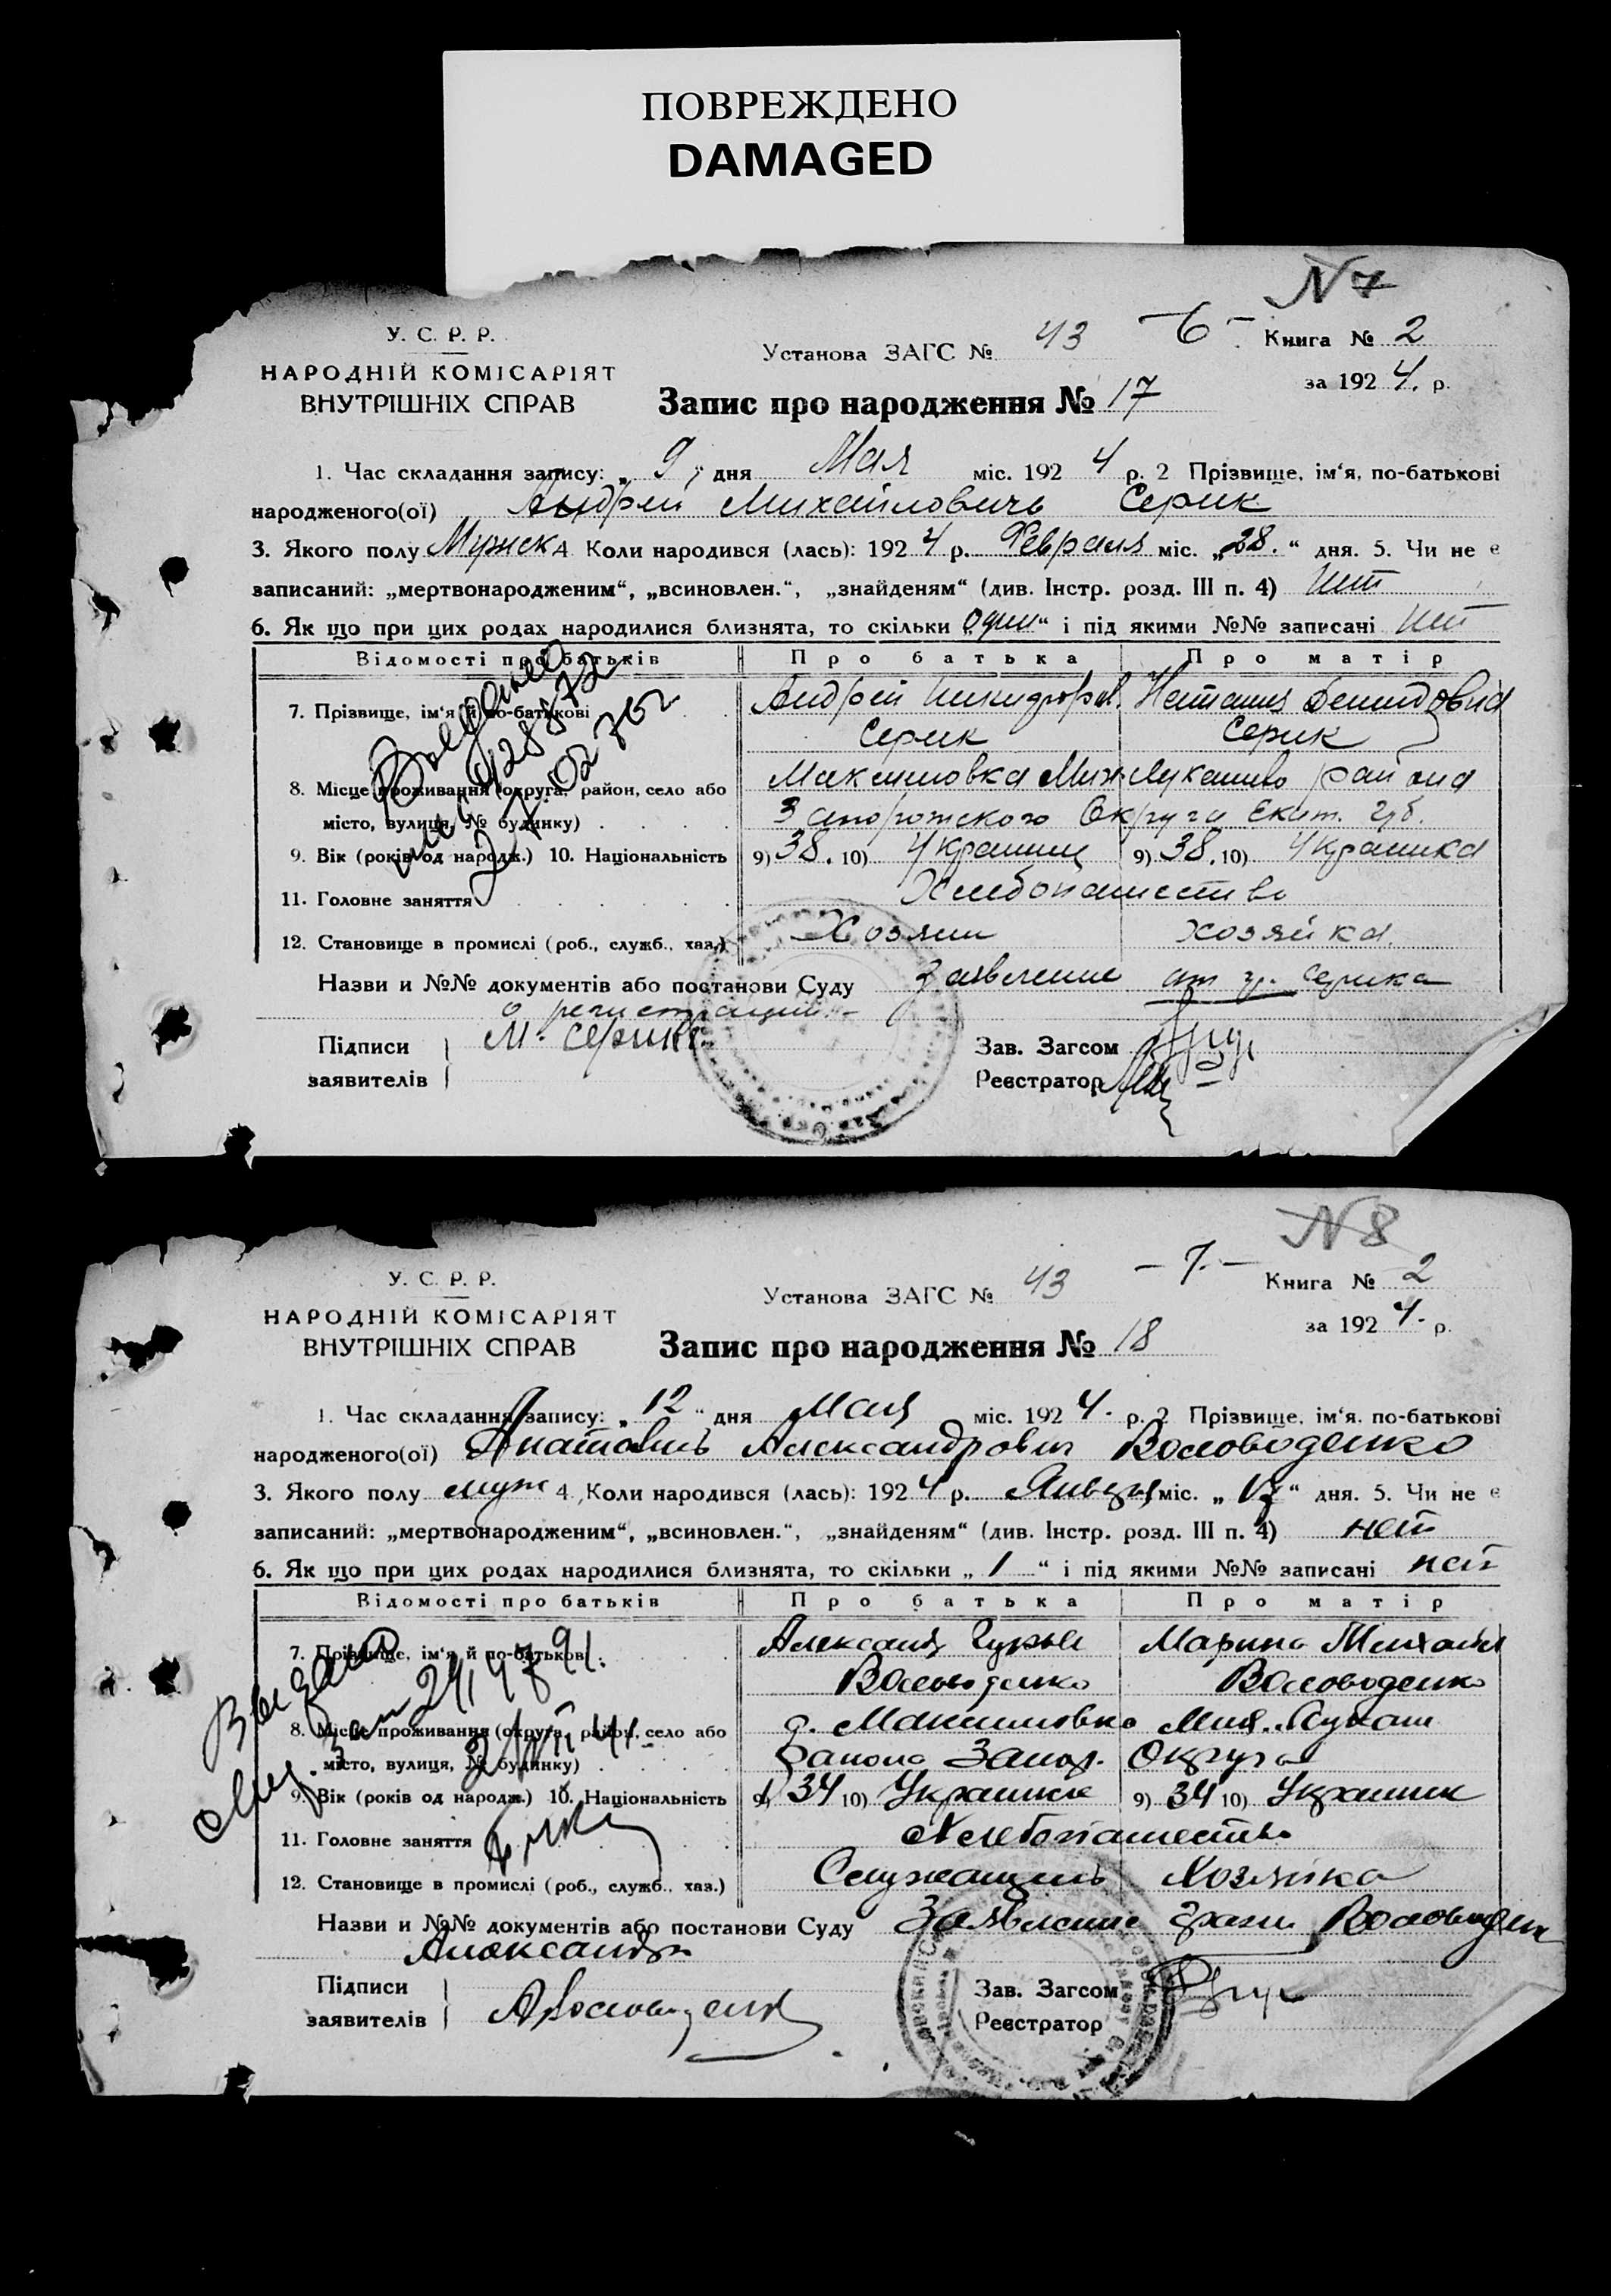 ПОВРЕЖДЕНО
DAMAGED
N 7
У. С. Р. Р.
НАРОДНІЙ КОМІСАРІЯТ
ВНУТРІШНІХ СПРАВ
Установа ЗАГС № 43
– 6 –
Книга № 2
за 1924. р.
Запис про народження № 17
1. Час складання запису: „ 9 " дня Мая міс. 1924 р. 2 Прізвище, ім‘я, по-батькові
народженого(ої) Андрей Михайловичь Серик
3. Якого полу Мужск 4. Коли народився (лась): 1924 р. Февраля міс. „28.“ дня. 5. Чи не є
записаний: „мертвонародженим“, „всиновлен.“, „знайденям“ (див. Інстр. розд. III п. 4) нет
6. Як що при цих родах народилися близнята, то скільки „один“ і під якими №№ записані нет
Відомості про батьків Про батька Про матір
7. Прізвище, ім‘я й по-батькові Андрей Никифоров. Наташа Демидовна
Серик Серик
8. Місце проживання (округа, район, село або Максимовка Мих. Лукашево района
місто, вулиця, № будинку) Запорожского Округа Екат. губ.
9. Вік (років од народж.) 10. Національність 9) 38. 10) Украинец 9) 38. 10) Украинка
11. Головне заняття Хлебопашество
12. Становище в промислі (роб., служб., хаз.) Хозяин хозяйка.
Назви и №№ документів або постанови Суду Заявление от гр. Серика
о регистрации –
Підписи М. Серик
заявителів
Зав. Загсом
Реєстратор
N 8
У. С. Р. Р.
НАРОДНІЙ КОМІСАРІЯТ
ВНУТРІШНІХ СПРАВ
Установа ЗАГС № 43
– 7. –
Книга № 2
за 1924. р.
Запис про народження № 18
1. Час складання запису: „ 12 “ дня Мая міс. 1924. р. 2 Прізвище, ім‘я, по-батькові
народженого(ої) Анатолий Александрович Воловоденко
3. Якого полу муж 4. Коли народився (лась): 1924 р. Января міс. „ 17 “ дня. 5. Чи не є
записаний: „мертвонародженим“, „всиновлен.“, „знайденям“ (див. Інстр. розд. III п. 4) нет
6. Як що при цих родах народилися близнята, то скільки „ 1 “ і під якими №№ записані нет
Відомості про батьків Про батька Про матір
7. Прізвище, ім‘я й по-батькові Александ Гурьев Марина Михайл
Воловоденко Воловоденко
8. Місце проживання (округа, район, село або д. Максимовка Мих. Лукаш
місто, вулиця, № будинку) района Запор. Округа
9. Вік (років од народж.) 10. Національність 9) 34 10) Украинск 9) 34 10) Украинск
11. Головне заняття Хлебопашество
12. Становище в промислі (роб., служб., хаз.) Служащий Хозяйка
Назви и №№ документів або постанови Суду Заявление граж Воловоден
Александра
Підписи А Воловоденк
заявителів
Зав. Загсом
Реєстратор